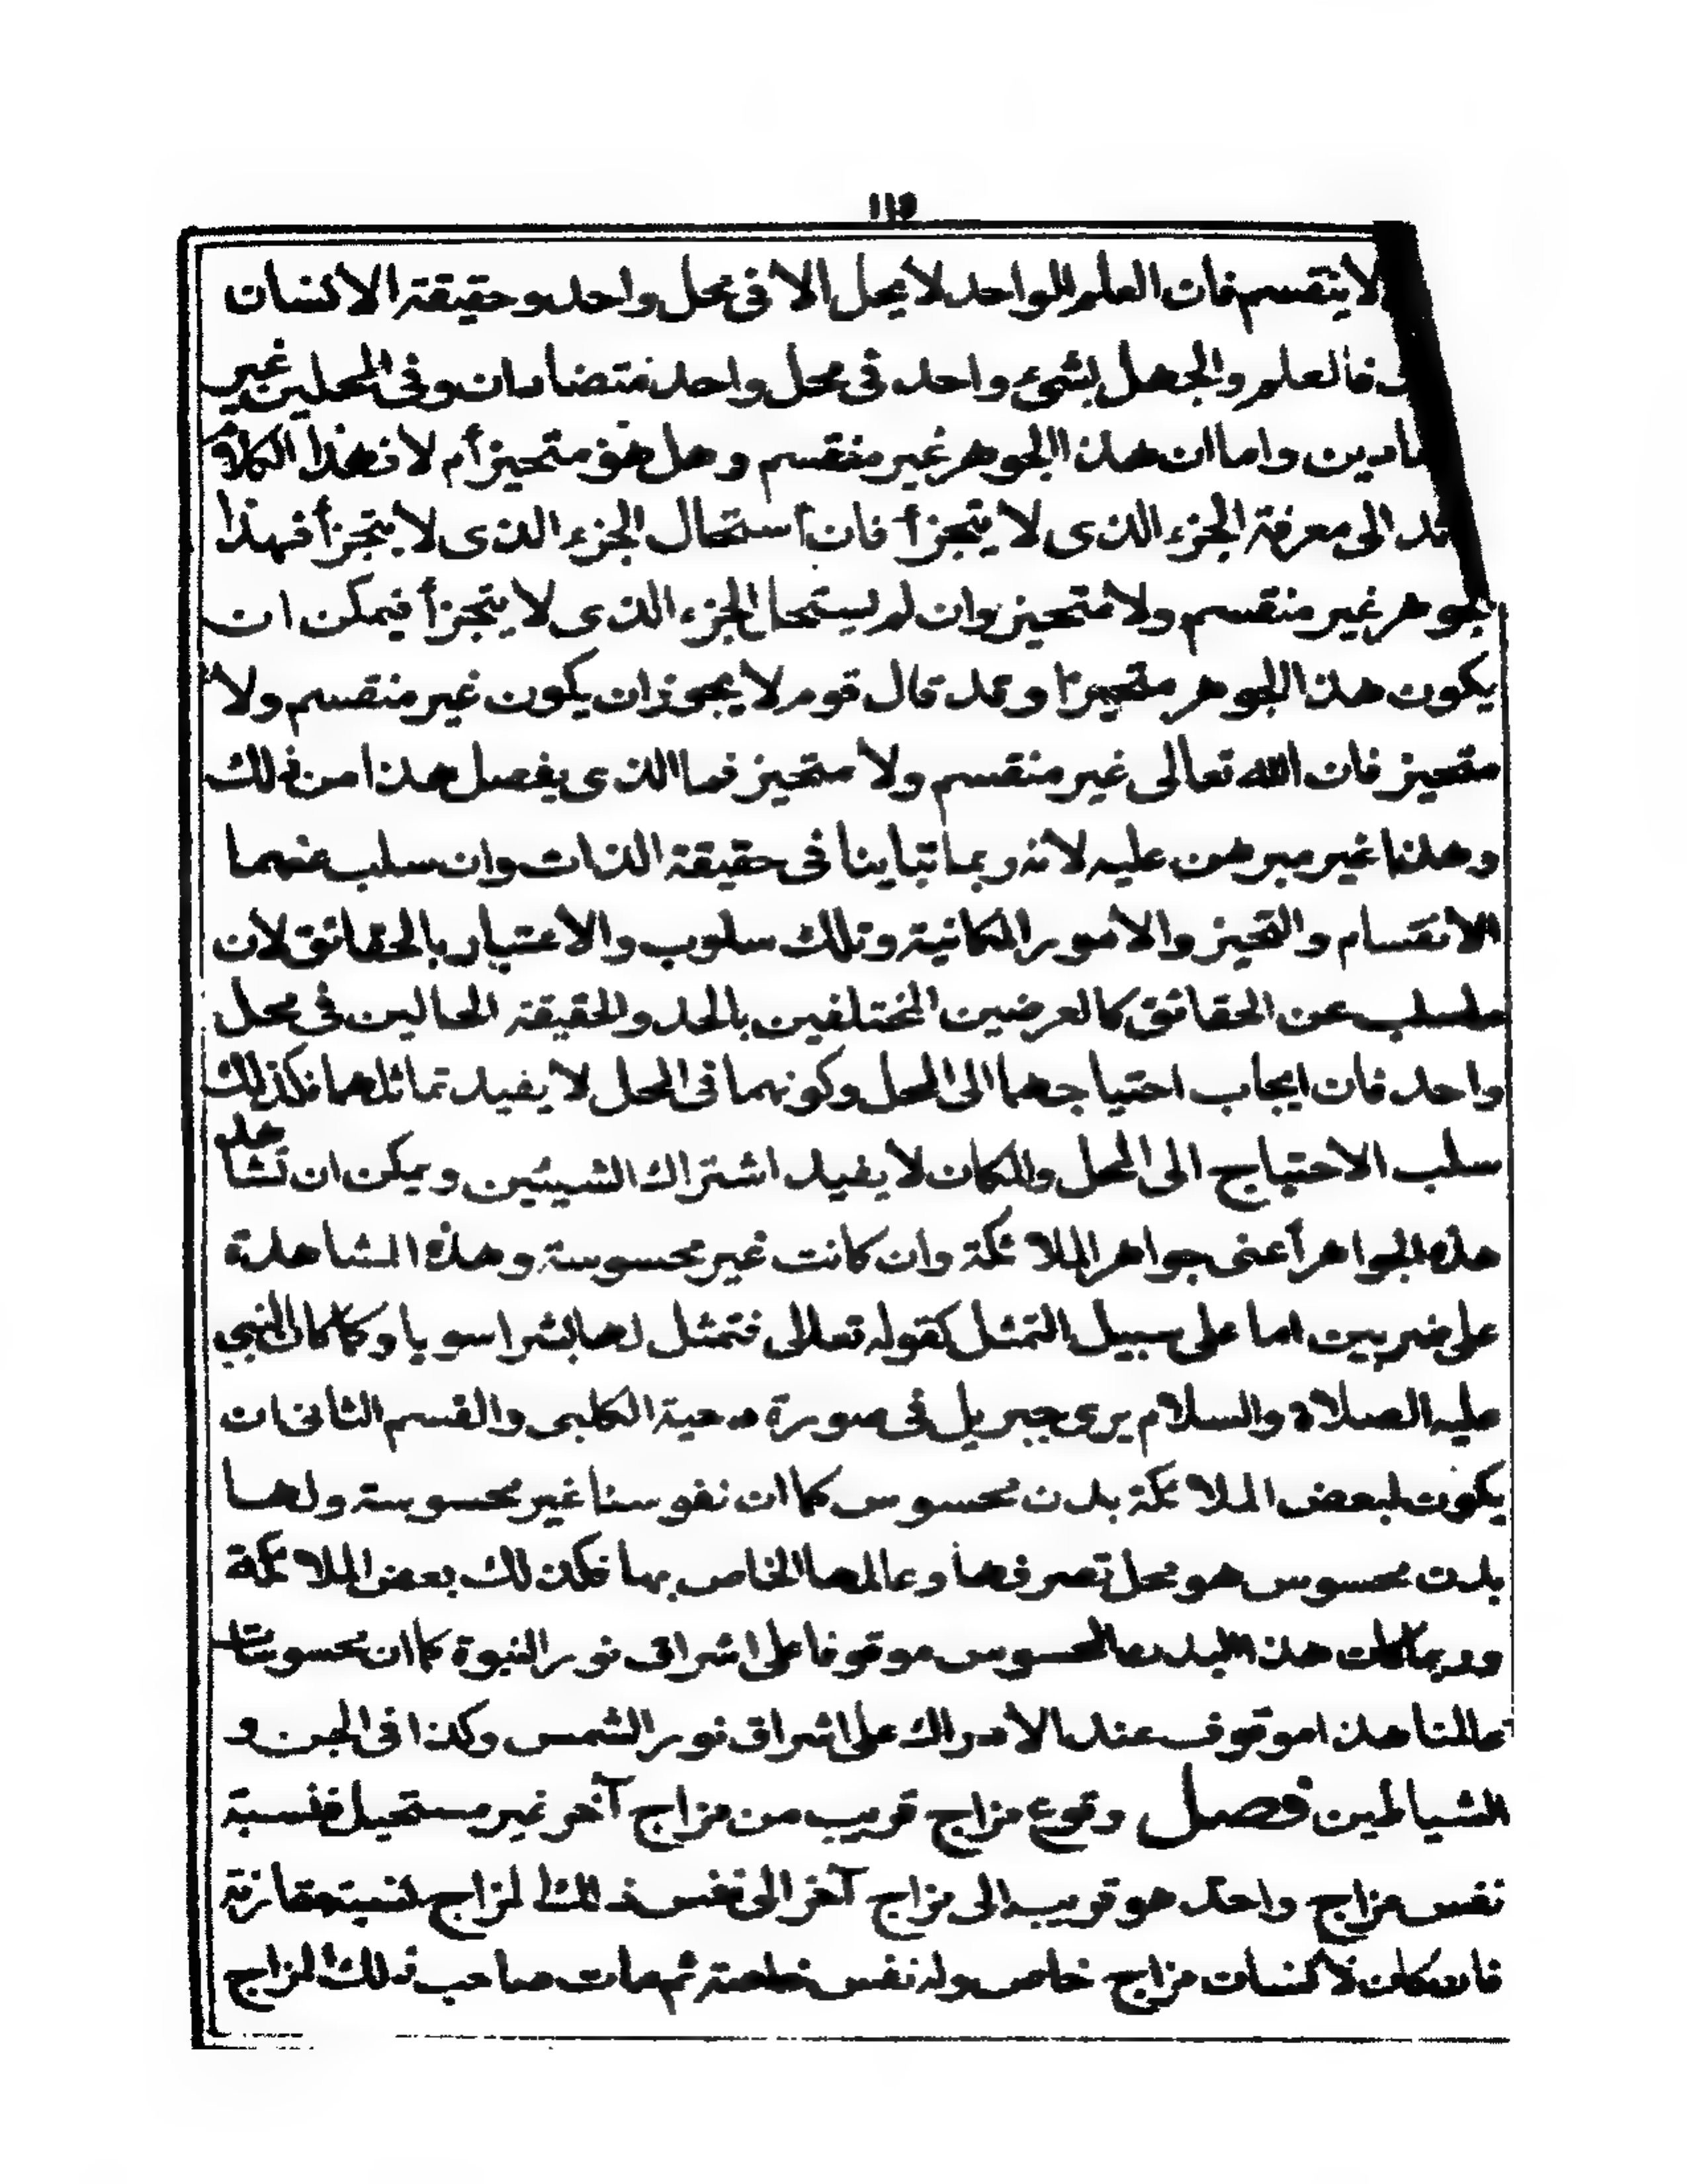 ١١٥
لا ينقسم فان العلم الواحد لا يحل الا فى محل واحد وحقيقة الانسان
فالعلم والجهل بشىء واحد فى محل واحد متضادان وفى المحلين غير
ادين واما ان هذا الجوهر غير منقسم وهل هو متحيز أم لا فهذا الكلام
الى معرفة الجزء الذى لا يتجزأ فان استحال الجزء الذى لا يتجزأ فهذا
الجوهر غير منقسم ولا متحيز وان لم يستحل الجزء الذى لا يتجزأ فيمكن ان
يكون هذا الجوهر متحيزا وقد قال قوم لا يجوز ان يكون غير منقسم ولا
متحيز فان الله تعالى غير منقسم ولا متحيز فما الذى يفصل هذا من ذلك
وهذا غير مبرهن عليه لانه ربما تباينا فى حقيقة الذات وان سلب عنهما
الانقسام والتحيز والامور المكانية وتلك سلوب والاعتبار بالحقائق لان
ماسلب عن الحقائق كالعرضين المختلفين بالحد والحقيقة الحالين فى محل
واحد فان ايجاب احتياجهما الى المحل وكونهما فى المحل لا يفيد تماثلهما فكذلك
سلب الاحتياج الى المحل والمكان لا يفيد اشتراك الشيئين ويمكن ان تشاهد
هذه الجواهر أعنى جواهر الملائكة وان كانت غير محسوسة وهذه المشاهدة
على ضربين اما على سبيل التمثل كقوله تعالى فتمثل لها بشرا سويا وكما كان النبى
عليه الصلاة والسلام يرى جبريل فى صورة دحية الكلبى والقسم الثانى ان
يكون لبعض الملائكة بدن محسوس كما ان نفوسنا غير محسوسة ولها
بدن محسوس هو محل تصرفها وعالمها الخاص بها فكذلك بعض الملائكة
وربما كان هذا البدن المحسوس موقوفا على اشراق نور النبوة كما ان محسوسات
عالمنا هذا موقوف عند الادراك على اشراق نور الشمس وكذا فى الجن و
الشياطين فصل وقوع مزاج قريب من مزاج آخر غير مستحيل فنسبة
نفس مزاج واحد هو قريب الى مزاج آخر الى نفس ذلك المزاج لنسبة مقارنة
فان كان لانسان مزاج خاص وله نفس خاصة ثم مات صاحب ذلك المزاج